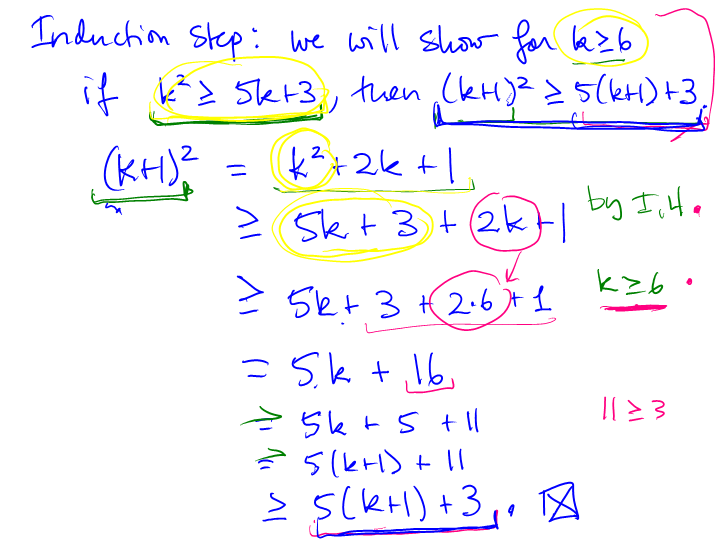 Induction Step: we will show for k≥6
if k² ≥ 5k+3, then (k+1)² ≥ 5(k+1)+3.
(k+1)² = k²+2k+1
≥ 5k+3+2k+1 by I.H.
≥ 5k+3+2·6+1 k≥6
= 5k+16
= 5k+5+11 11≥3
= 5(k+1)+11
≥ 5(k+1)+3.